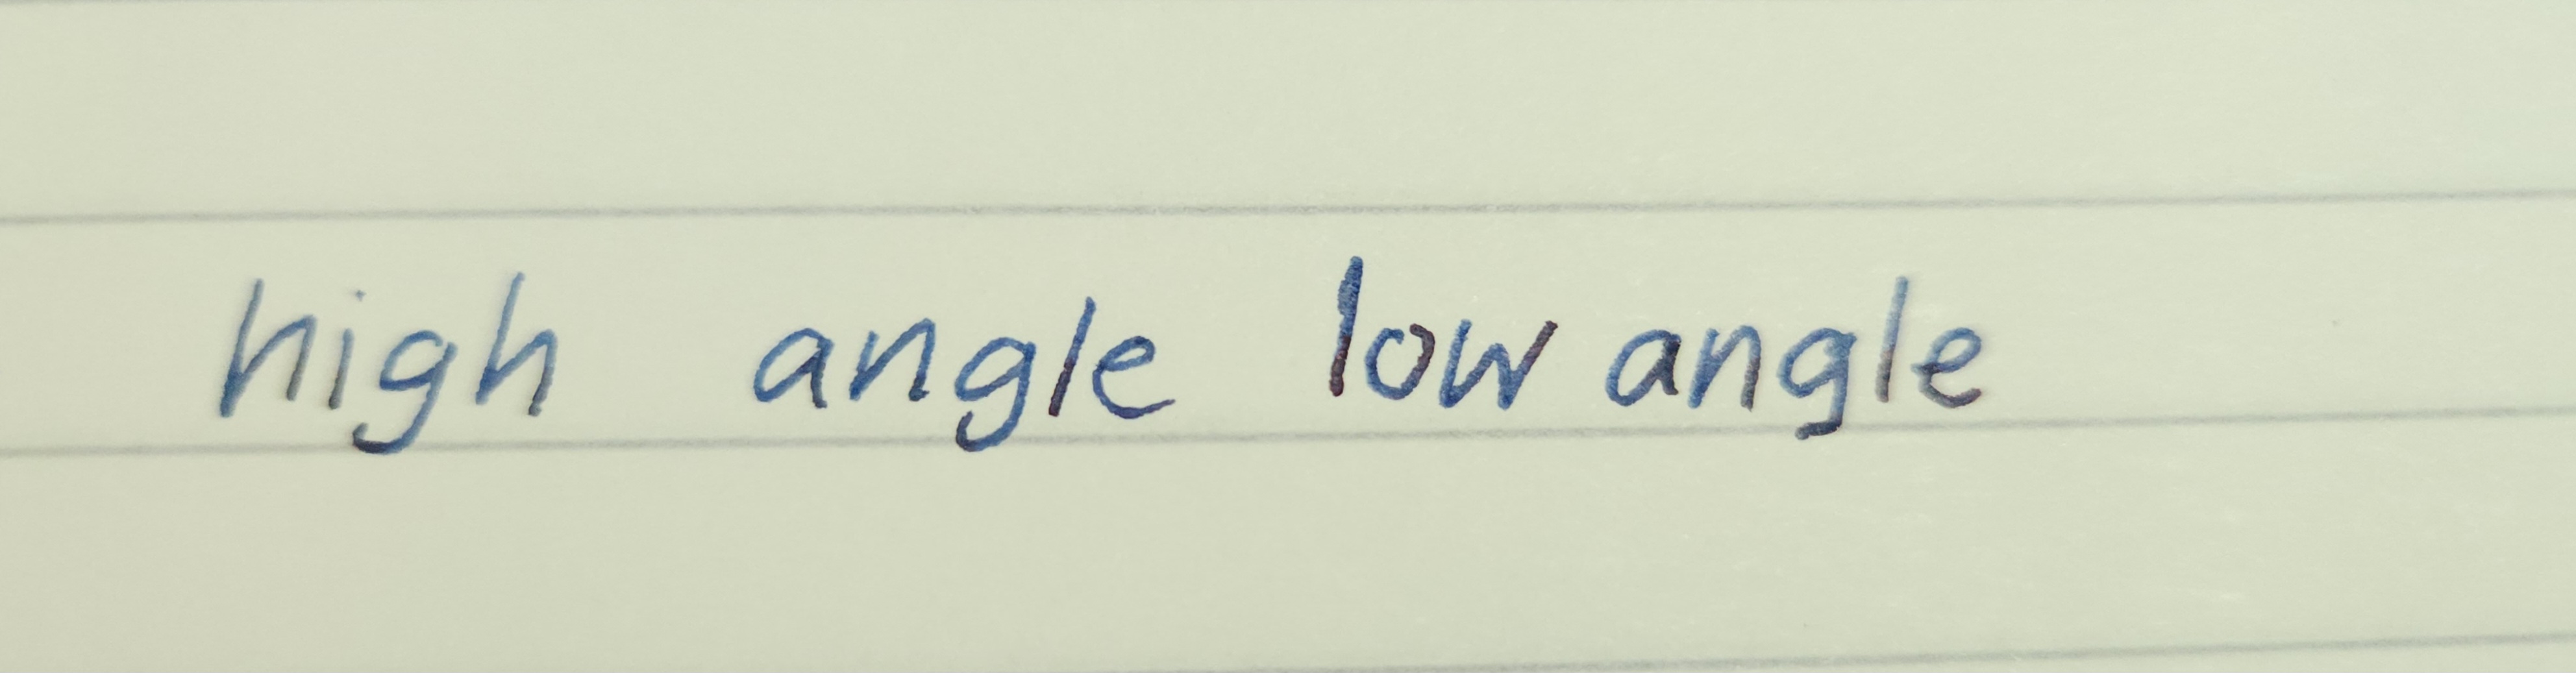 high angle low angle